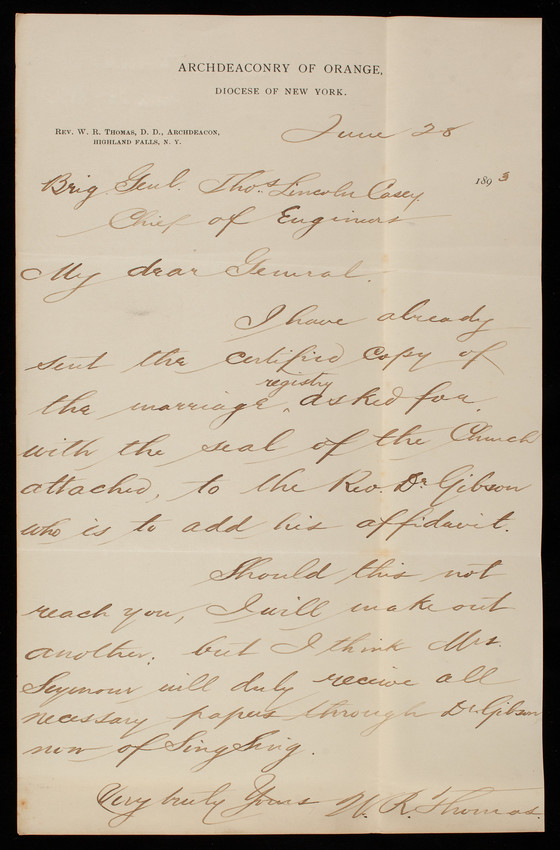 ARCHDEACONRY OF ORANGE,
DIOCESE OF NEW YORK.
REV. W. R. THOMAS, D. D., ARCHDEACON,
HIGHLAND FALLS, N. Y.
June 28
1893
Brig. Genl. Thos Lincoln Casey
Chief of Engineers
My dear General.
I have already
sent the certified copy of
registry
the marriage ‸ asked for,
with the seal of the Church
attached, to the Rev. Dr Gibson
who is to add his affidavit.
Should this not
reach you, I will make out
another; but I think Mrs.
Seymour will duly receive all
necessary papers through Dr Gibson
now of Sing Sing.
Very truly Yours W. R. Thomas.